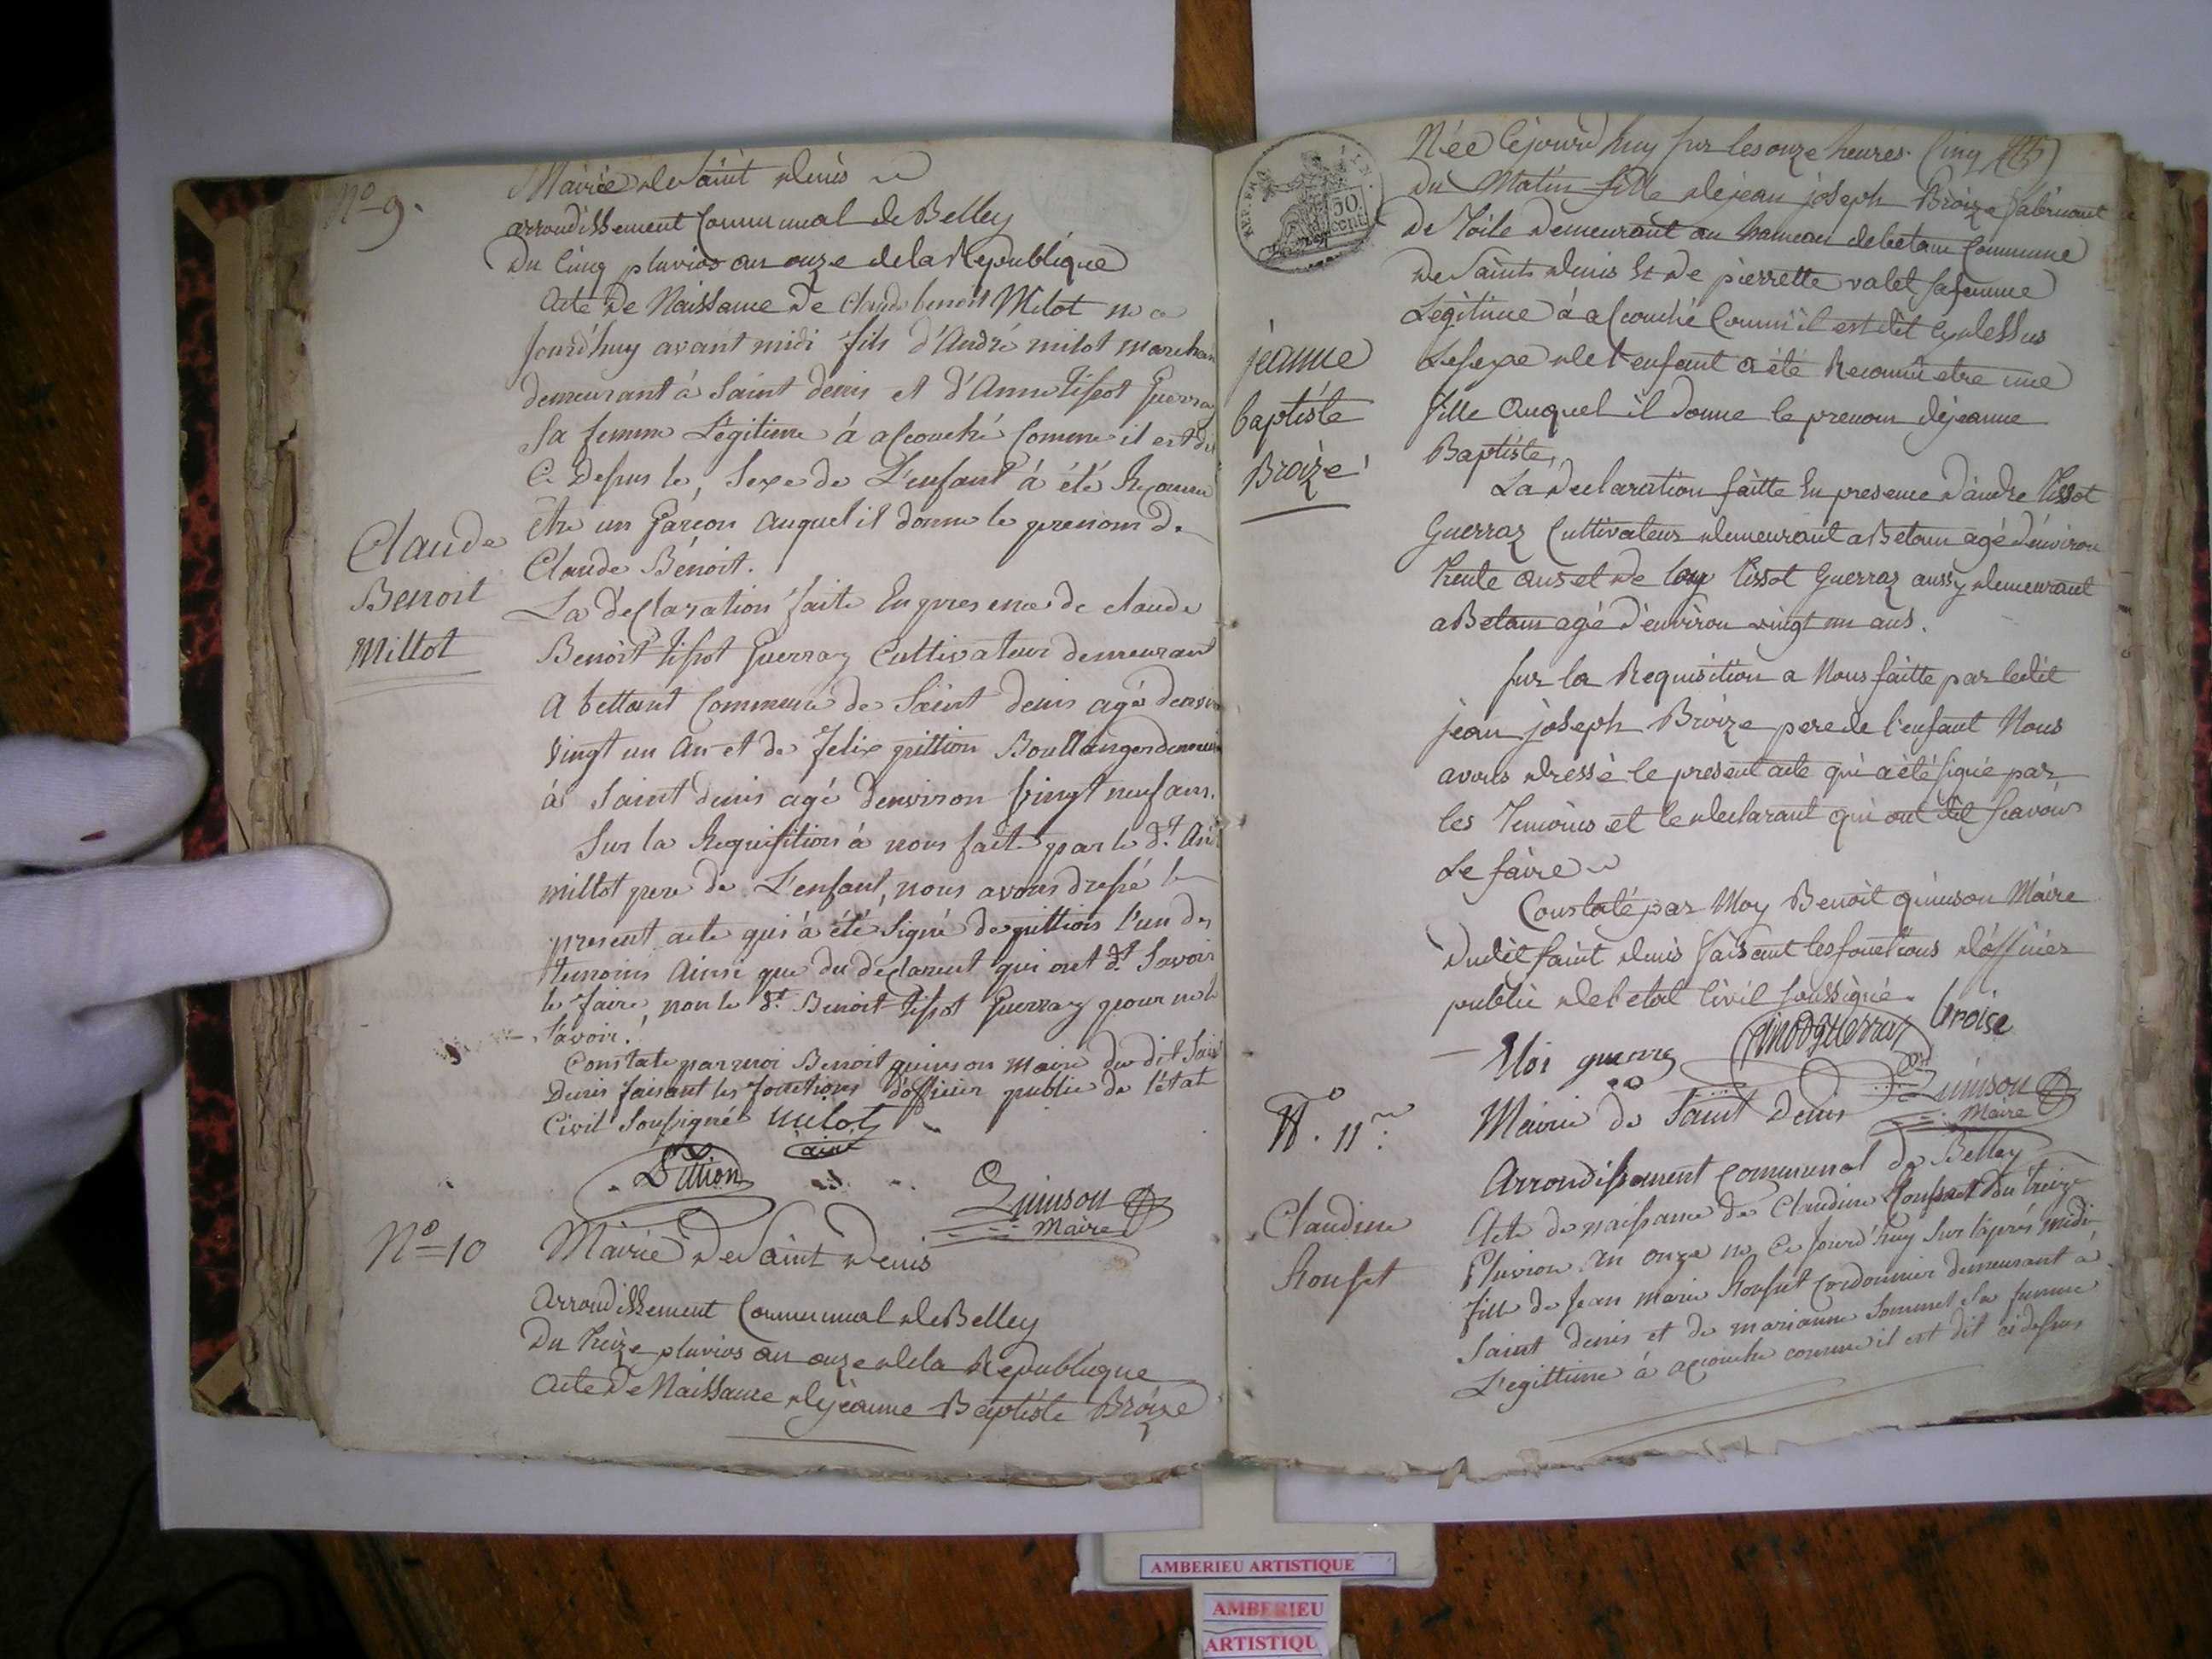 No 9.
Mairie de Saint denis
arrondissement Communal de Belley
Du Cinq pluvios an onze de la Republique
Acte De Naissance De Claude benoit Milot ne ce
jourd'huy avant midi fils d'André milot marchan
demeurant à Saint denis et d'Anne tissot Guerraz
Sa femme Légitime à accouché Comme il est di
Ci Dessus le Sexe de L'enfant à été Reconnu
Etre un Garçon auquel il donne le prenom de
Claude Bénoit.
Claude
Benoit
Millot
La déclaration faite En presence de claude
Benoit tissot Guerraz Cultivateur demeurant
A bettant Commune de Saint denis agé denviron
Vingt un An et de felix pittion Boullanger demeur
à Saint denis agé denviron Vingt neuf ans.
Sur la Requisition à nous faite par le dt. And
millot pere de L'enfant, nous avons dressé le
present acte qui à été Signé de pittion l'un des
temoins Ainsi que du déclarent qui ont dt Savoir
le faire, non le dt. Benoit tissot Guerraz pour ne le
Savoir.
Constaté par moi Benoit quinson Maire du dit Saint
Denis faisant les fonctions d'officier public de l'état
Civil Soussigné milot
ainé
Pittion
Quinson
Maire
No 10
Mairie de Saint Denis
Arrondissement Communal de Belley
Du treize pluvios an onze de la Republique
Acte De Naissance de jeanne Baptiste Broize
Née Cejourd'huy sur les onze heures Cinq
Du Matin fille de jean joseph Broize fabricant
De Toile Demeurant au hameau de betam Commune
De Saint denis Et De pierrette valet sa femme
Legitime à accouché Comm'il est dit Cy dessus
Le sexe de l'enfant a été Reconnu etre une
fille auquel il donne le prenom de jeanne
Baptiste,
50
cent
jeanne
baptiste
Broize
La declaration faitte En presence d'andre tissot
Guerraz Cultivateur demeurant a Betam agé d'environ
trente ans et De loy tissot Guerraz aussy demeurant
a Betam agé d'environ vingt un ans.
sur la Requisition a Nous faitte par ledit
jean joseph Broize pere de l'enfant Nous
avons dressé le present acte qui a été signé par
les Temoins et le declarant qui ont dit scavoir
Le faire
Constaté par Moy Benoit quinson Maire
Dudit saint denis faisant les fonctions d'officier
public de l'etat Civil soussigné. broise
Quinson
Maire
N.o 11
Mairie de Saint Denis
Arrondissement communal de Belley
Acte de naissance de Claudine Rousset du treize
Pluviose an onze ne ce jourd'huy Sur l'aprés midi
fille de Jean marie Rousset Cordonnier demeurant à
Saint denis et de marianne Sommet Sa femme
Légittime à accouché comme il est dit ci dessus
Claudine
Rousset
AMBERIEU ARTISTIQUE
AMBERIEU
ARTISTIQU